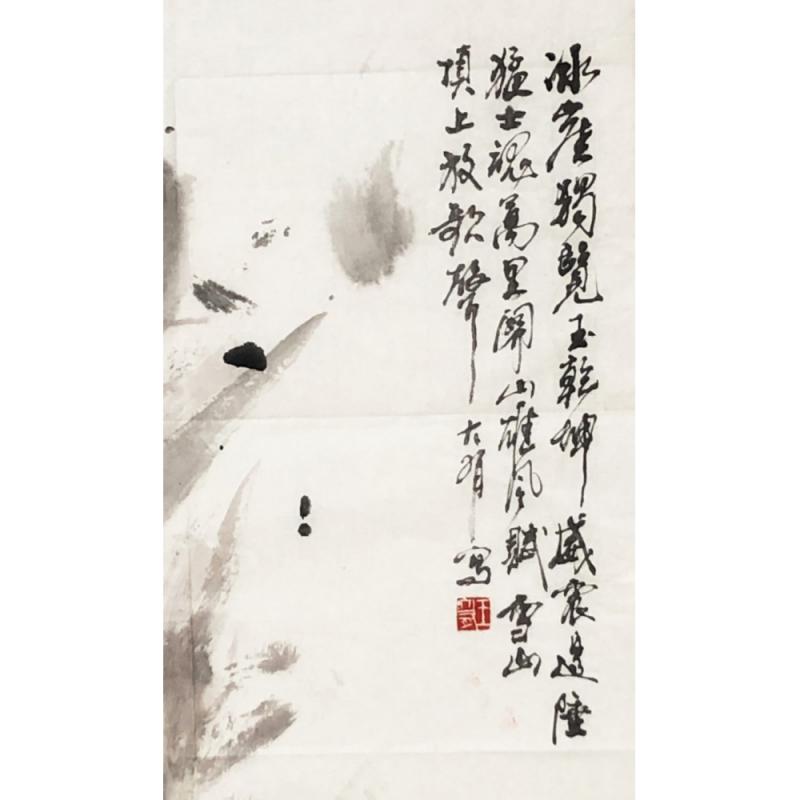 冰崖獨覽玉乾坤威震邊陲
猛士魂萬里關山雄風賦雪山
頂上放歌聲 大有寫